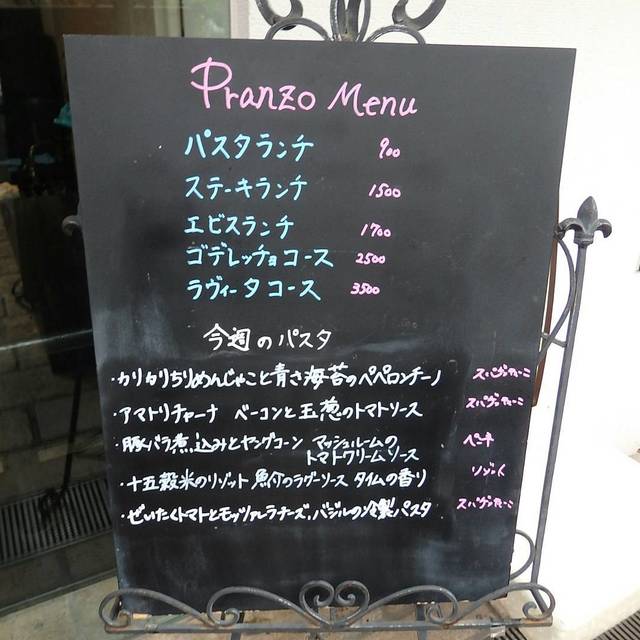 Pranzo Menu
パスタランチ 900
ステーキランチ 1500
エビスランチ 1700
ゴデレッチョコース 2500
ラヴィータコース 3500
今週のパスタ
・カリカリちりめんじゃこと青さ海苔のペペロンチーノ スパゲッティーニ
・アマトリチャーナ ベーコンと玉葱のトマトソース スパゲッティーニ
・豚バラ煮込みとヤングコーン マッシュルームの ペンネ
トマトクリームソース
・十五穀米のリゾット 魚介のラグーソース タイムの香り リゾット
・ぜいたくトマトとモッツァレラチーズ、バジルの冷製パスタ スパゲッティーニ